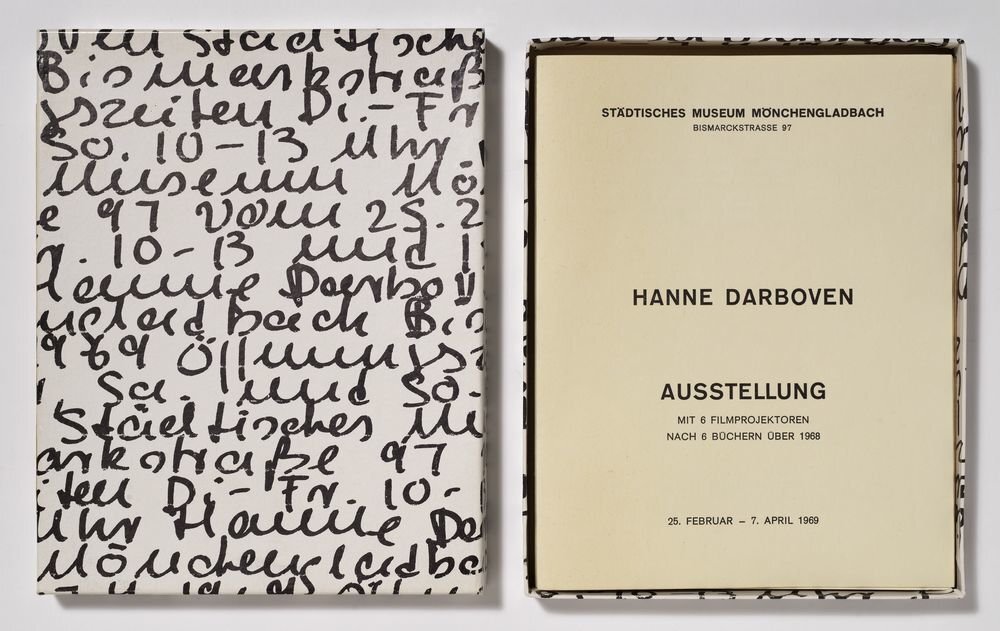 Städtische
Bismarkstraß
szeiten Di.-Fr
So. 10-13 Uhr
Museum Mö
e 97 vom 25.2
r. 10-13 und 1
Hanne Darbov
ncladbach Bis
969 Öffnungsz
Sa. und So.
Städtisches Mu
arkstraße 97
iten Di.-Fr. 10-
Uhr Hanne Da
Mönchengladba
STÄDTISCHES MUSEUM MÖNCHENGLADBACH
BISMARCKSTRASSE 97
HANNE DARBOVEN
AUSSTELLUNG
MIT 6 FILMPROJEKTOREN
NACH 6 BÜCHERN ÜBER 1968
25. FEBRUAR – 7. APRIL 1969